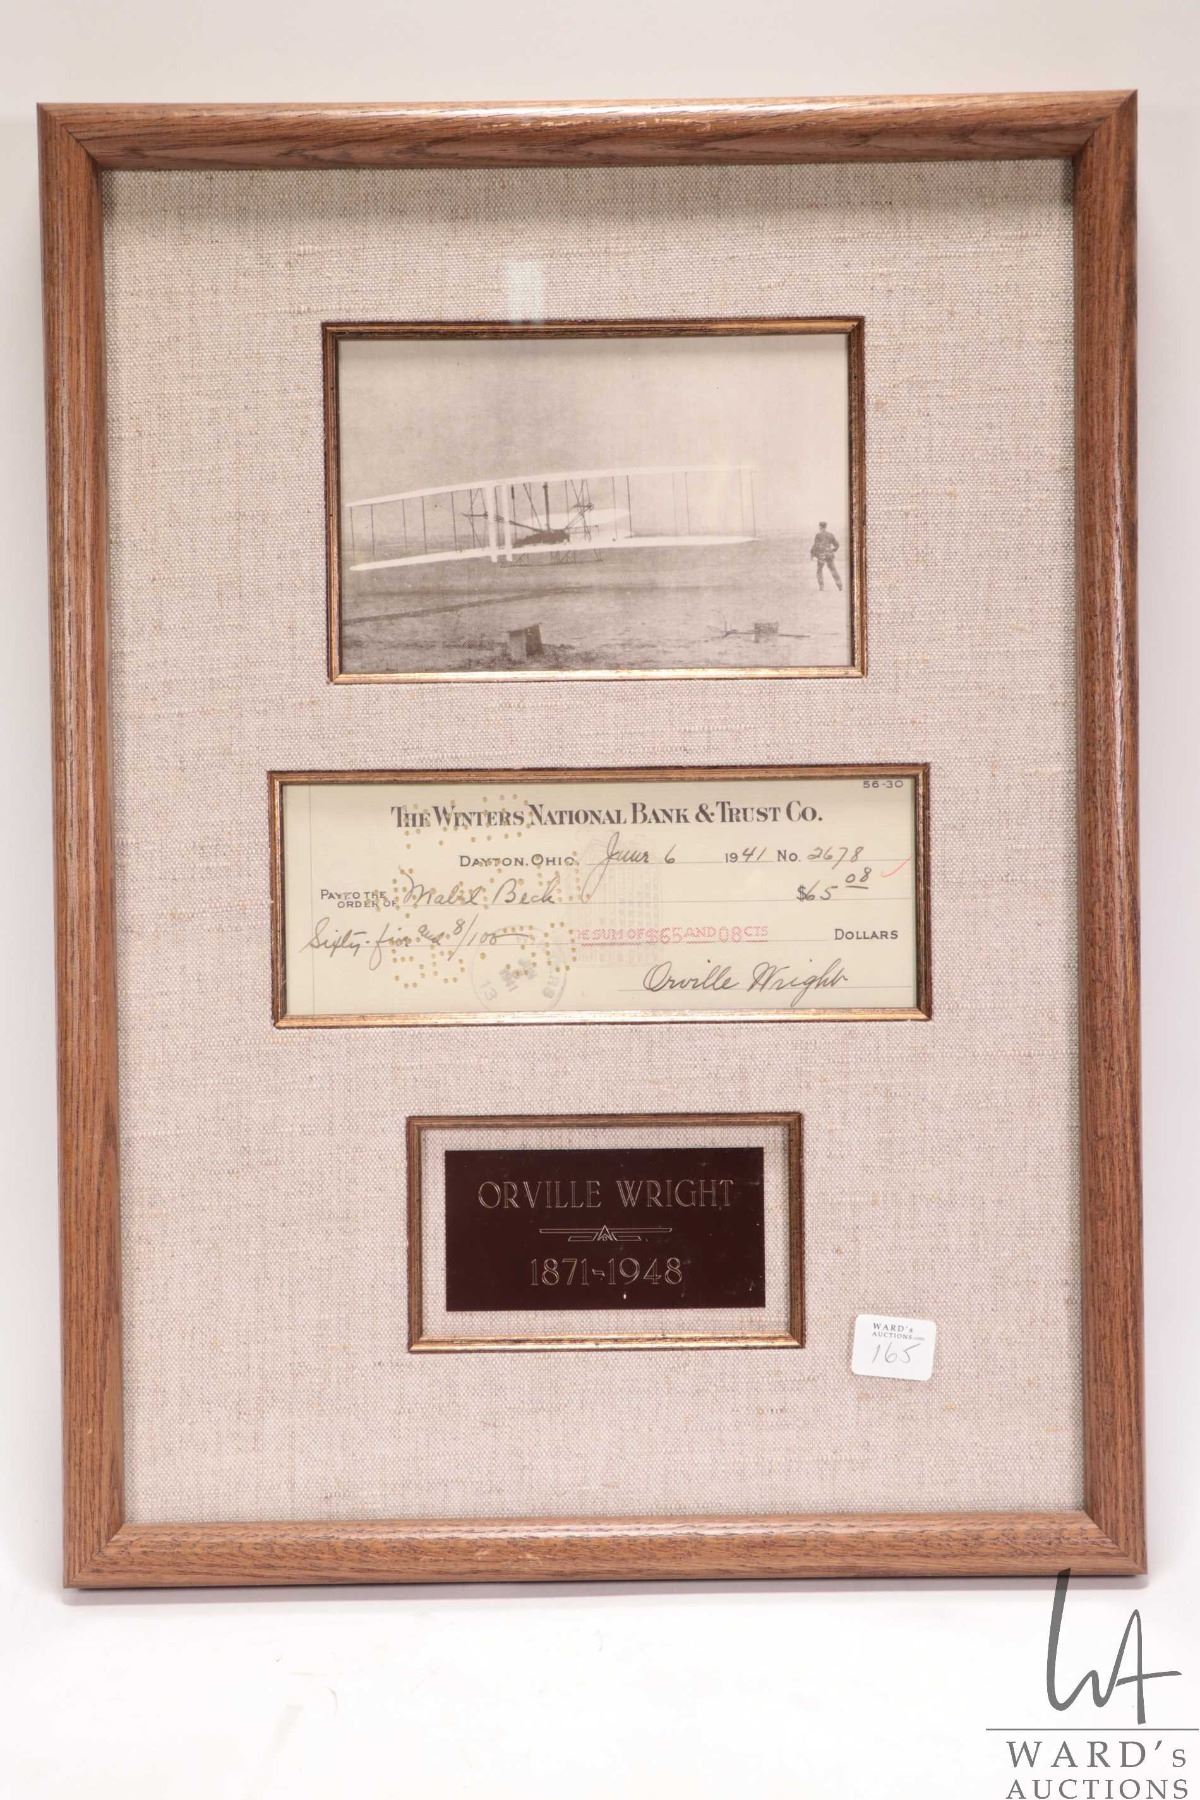 56-30
THE WINTERS NATIONAL BANK & TRUST CO.
DAYTON, OHIO, June 6 1941 No. 2678
PAY TO THE ORDER OF Mabel Beck $65 08
Sixty-five and 8/100 THE SUM OF $65 AND 08 CTS DOLLARS
Orville Wright
ORVILLE WRIGHT
1871-1948
WARD's
AUCTIONS.com
165
WA
WARD's
AUCTIONS